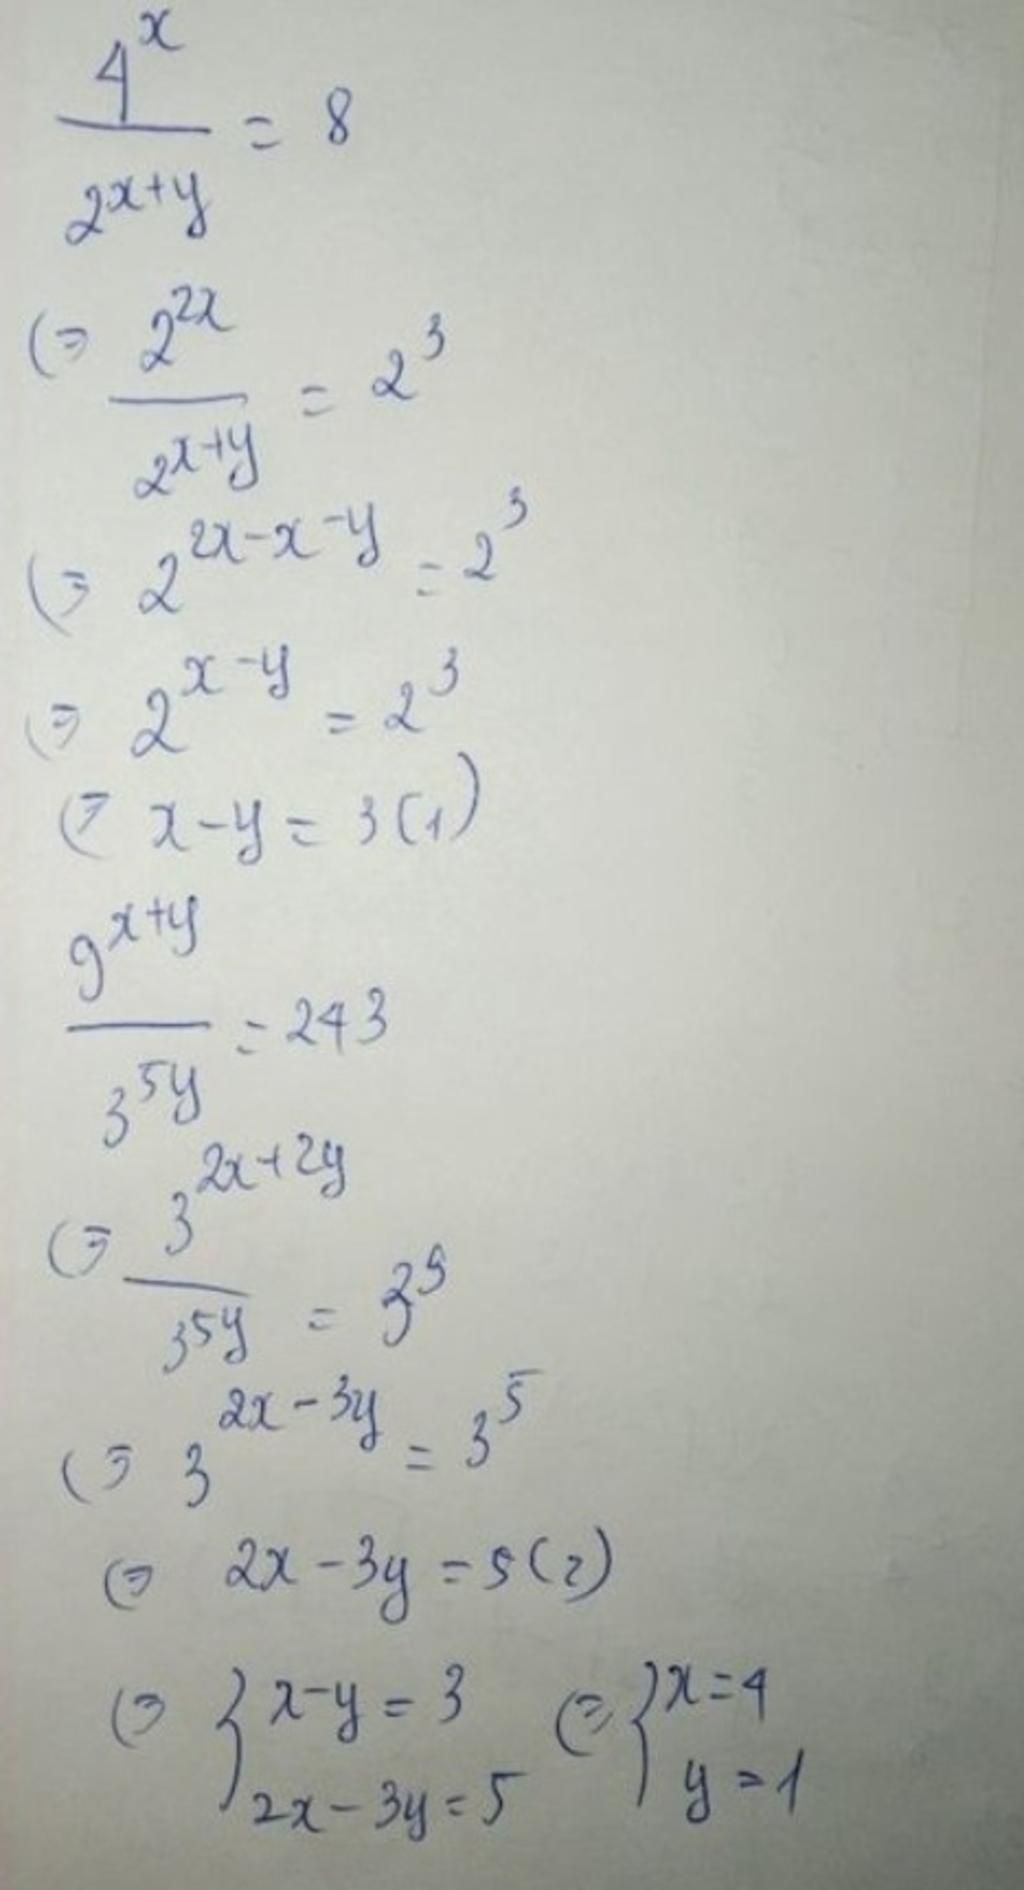 4^x / 2^{x+y} = 8
⇔ 2^{2x} / 2^{x+y} = 2^3
⇔ 2^{2x-x-y} = 2^3
⇔ 2^{x-y} = 2^3
⇔ x-y = 3 (1)
9^{x+y} / 3^{5y} = 243
⇔ 3^{2x+2y} / 3^{5y} = 3^5
⇔ 3^{2x-3y} = 3^5
⇔ 2x-3y = 5 (2)
⇔ { x-y = 3 ⇔ { x=4
2x-3y = 5 y=1